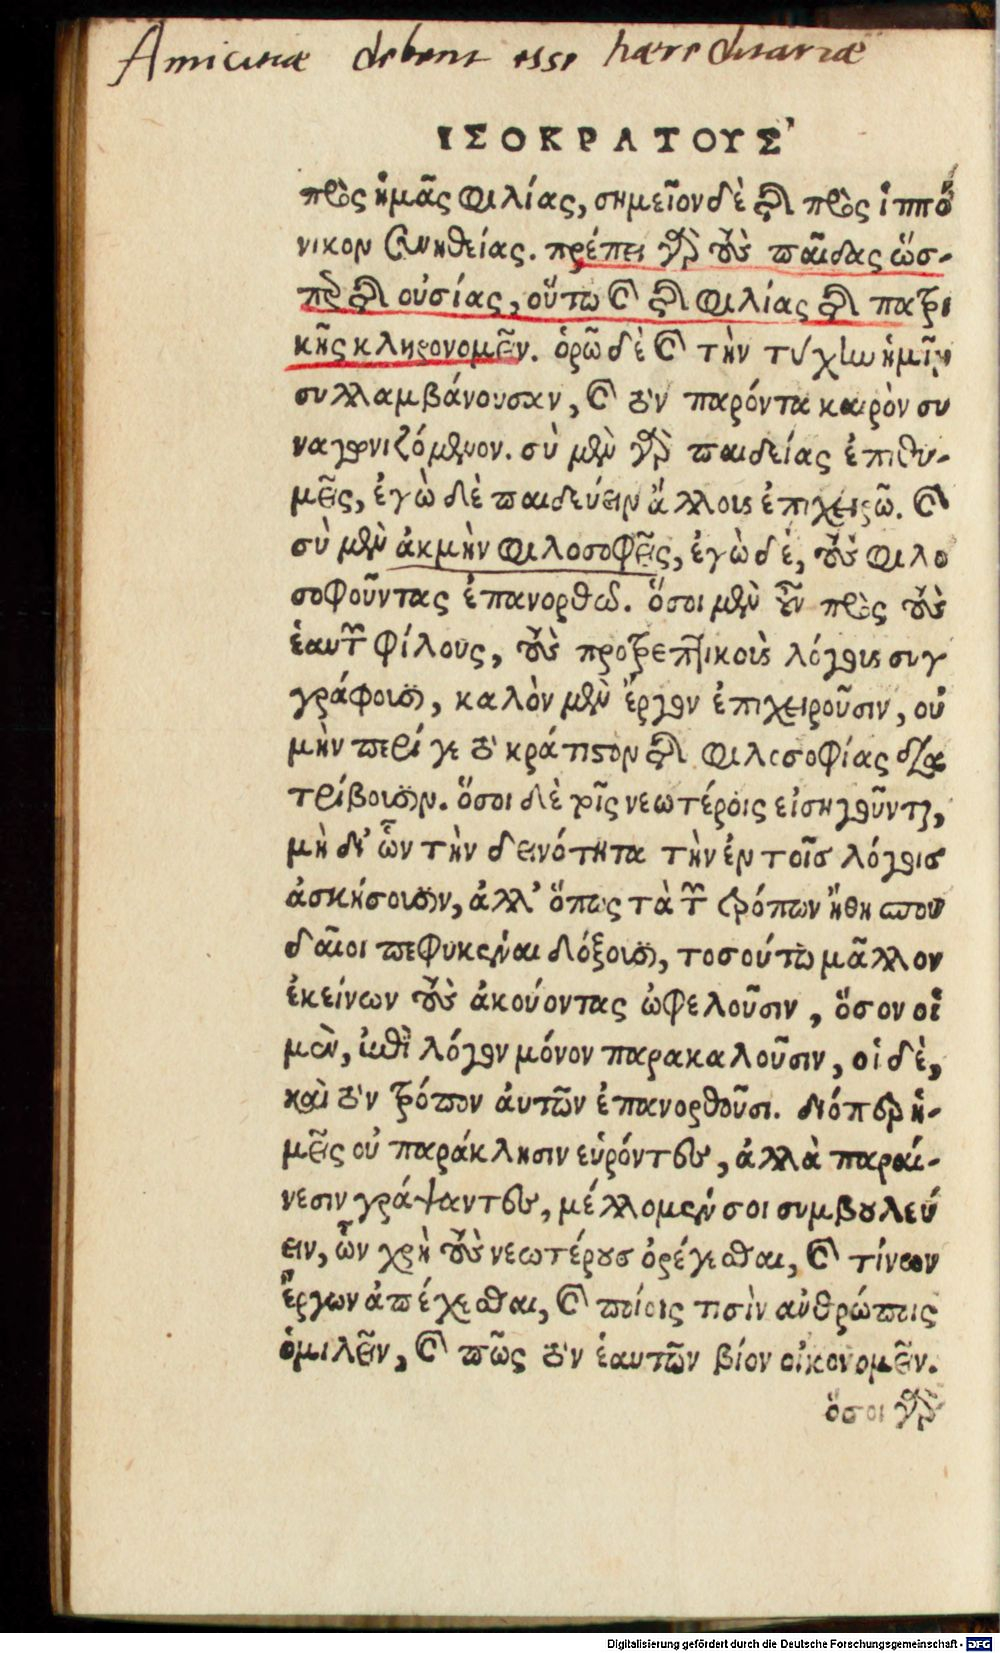 Amicitiæ debent esse hæreditariæ
ΙΣΟΚΡΑΤΟΥΣ
πρὸς ἡμᾶς φιλίας, σημεῖον δὲ τῆς πρὸς ἱππό
νικον συνηθείας. πρέπει γὰρ τοὺς παῖδας ὥσ-
περ τῆς οὐσίας, οὕτω καὶ τῆς φιλίας τῆς πατρι
κῆς κληρονομεῖν. ὁρῶ δὲ καὶ τὴν τύχην ἡμῖν
συλλαμβάνουσαν, καὶ τὸν παρόντα καιρὸν συ
ναγωνιζόμενον. σὺ μὲν γὰρ παιδείας ἐπιθυ-
μεῖς, ἐγὼ δὲ παιδεύειν ἄλλους ἐπιχειρῶ. καὶ
σὺ μὲν ἀκμὴν φιλοσοφεῖς, ἐγὼ δέ, τοὺς φιλο
σοφοῦντας ἐπανορθῶ. ὅσοι μὲν οὖν πρὸς τοὺς
ἑαυτῶν φίλους, τοὺς προτρεπτικοὺς λόγους συγ
γράφουσι, καλὸν μὲν ἔργον ἐπιχειροῦσιν, οὐ
μὴν περί γε τὸ κράτιστον τῆς φιλοσοφίας δια
τρίβουσιν. ὅσοι δὲ τοῖς νεωτέροις εἰσηγοῦνται,
μὴ δι' ὧν τὴν δεινότητα τὴν ἐν τοῖς λόγοις
ἀσκήσουσιν, ἀλλ' ὅπως τὰ τῶν τρόπων ἤθη σπου
δαῖοι πεφυκέναι δόξουσι, τοσούτῳ μᾶλλον
ἐκείνων τοὺς ἀκούοντας ὠφελοῦσιν, ὅσον οἱ
μὲν, ἐπὶ λόγον μόνον παρακαλοῦσιν, οἱ δὲ,
καὶ τὸν τρόπον αὐτῶν ἐπανορθοῦσι. διόπερ ἡ-
μεῖς οὐ παράκλησιν εὑρόντες, ἀλλὰ παραί-
νεσιν γράψαντες, μέλλομέν σοι συμβουλεύ
ειν, ὧν χρὴ τοὺς νεωτέρους ὀρέγεσθαι, καὶ τίνων
ἔργων ἀπέχεσθαι, καὶ ποίοις τισὶν ἀνθρώποις
ὁμιλεῖν, καὶ πῶς τὸν ἑαυτῶν βίον οἰκονομεῖν.
ὅσοι γὰρ
Digitalisierung gefördert durch die Deutsche Forschungsgemeinschaft - DFG